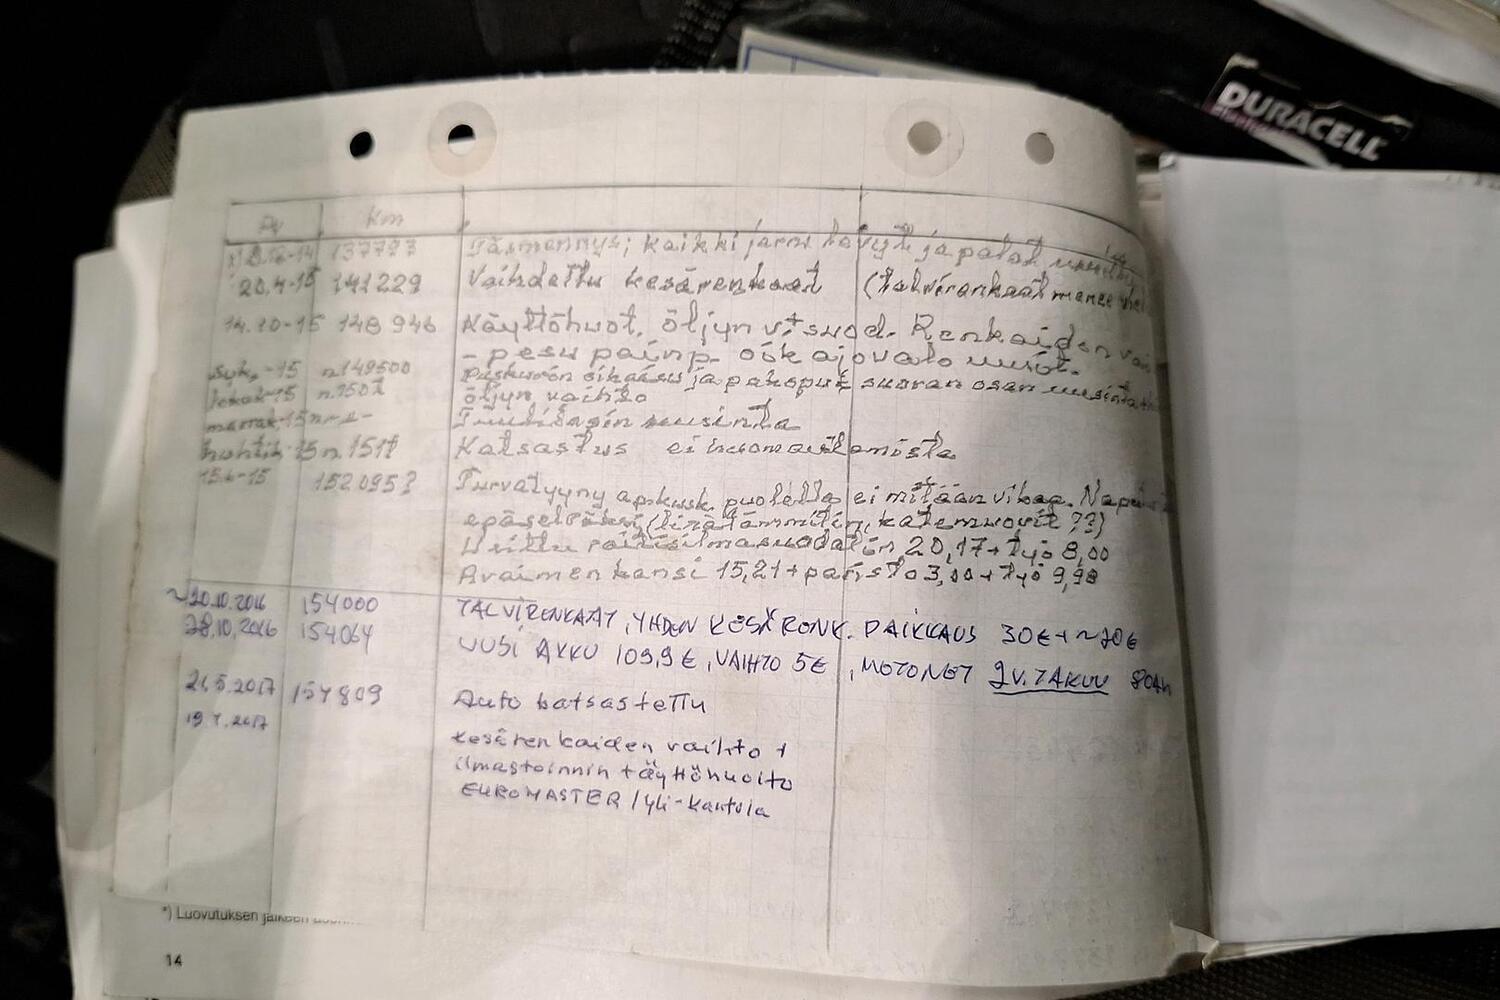 DURACELL
Pv km
137793 Täsmennys; kaikki jarru levyt ja palat uusittu
20.4-15 141229 Vaihdettu kesärenkaat (talvirenkaat menee
14.10-15 148 946 Käyttöhuol. öljyn v. + suod. Renkaiden
- pesu painp. ook ajovalo uusit.
Syk.-15 n.149500 Puskurin oikaisu ja pakoput suoran osan uusinta
Lokak-15 n.150t öljyn vaihto
marrak.15 n -"- Tuulilasin uusinta
huhtik-15 n.151t Katsastus ei huomauttamista
15.6-15 152095? Turvatyyny apukusk. puolella ei mitään vikaa.
epäselväksi (lisälämmitin, katemuovit ??)
Uusittu raitisilmasuodatin 20,17 + työ 8,00
Avaimen kansi 15,21 + paristo 3,00 + työ 9,98
~20.10.2016 154000 TALVIRENKAAT, YHDEN KESÄRENK. PAIKKAUS 30€ + ~70€
28.10.2016 154064 UUSI AKKU 109,9 €, VAIHTO 5€, MOTONET 2V. TAKUU 80Ah
21.5.2017 157809 Auto katsastettu
19.7.2017
kesärenkaiden vaihto +
ilmastoinnin täyttöhuolto
EUROMASTER / yli-Kautola
*) Luovutuksen jälkeen
14